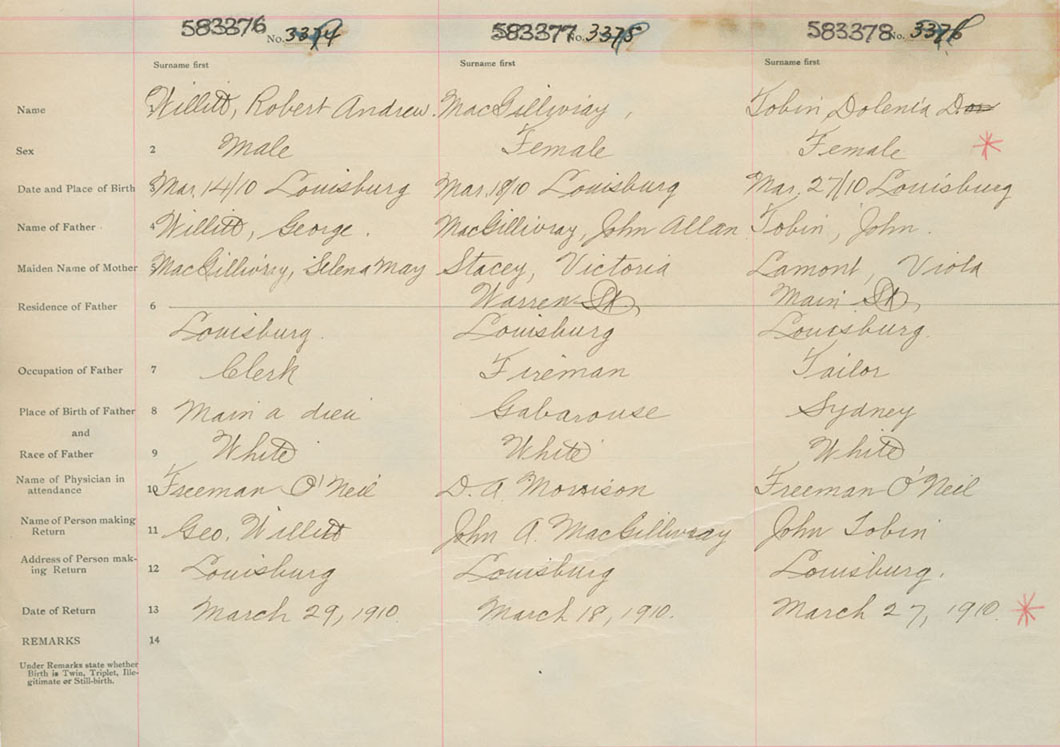 583376 No. 3374 583377 No. 3375 583378 No. 3376
Surname first Surname first Surname first
Name 1 Willitt, Robert Andrew. MacGillivray, Tobin, Dolenia Dor
Sex 2 Male Female Female
Date and Place of Birth 3 Mar. 14/10 Louisburg Mar. 18/10 Louisburg Mar. 27/10 Louisburg
Name of Father 4 Willitt, George. MacGillivray, John Allan Tobin, John.
Maiden Name of Mother 5 MacGillivray, Selena May Stacey, Victoria Lamont, Viola
Warren St., Main St.,
Residence of Father 6
Louisburg. Louisburg Louisburg.
Occupation of Father 7 Clerk Fireman Tailor
Place of Birth of Father 8 Main a dieu Gabarouse Sydney
and
Race of Father 9 White White White
Name of Physician in
attendance 10 Freeman O'Neil D. A. Morrison Freeman O'Neil
Name of Person making
Return 11 Geo. Willitt John A. MacGillivray John Tobin
Address of Person mak-
ing Return 12 Louisburg Louisburg Louisburg.
Date of Return 13 March 29, 1910. March 18, 1910. March 27, 1910.
REMARKS 14
Under Remarks state whether
Birth is Twin, Triplet, Ille-
gitimate or Still-birth.